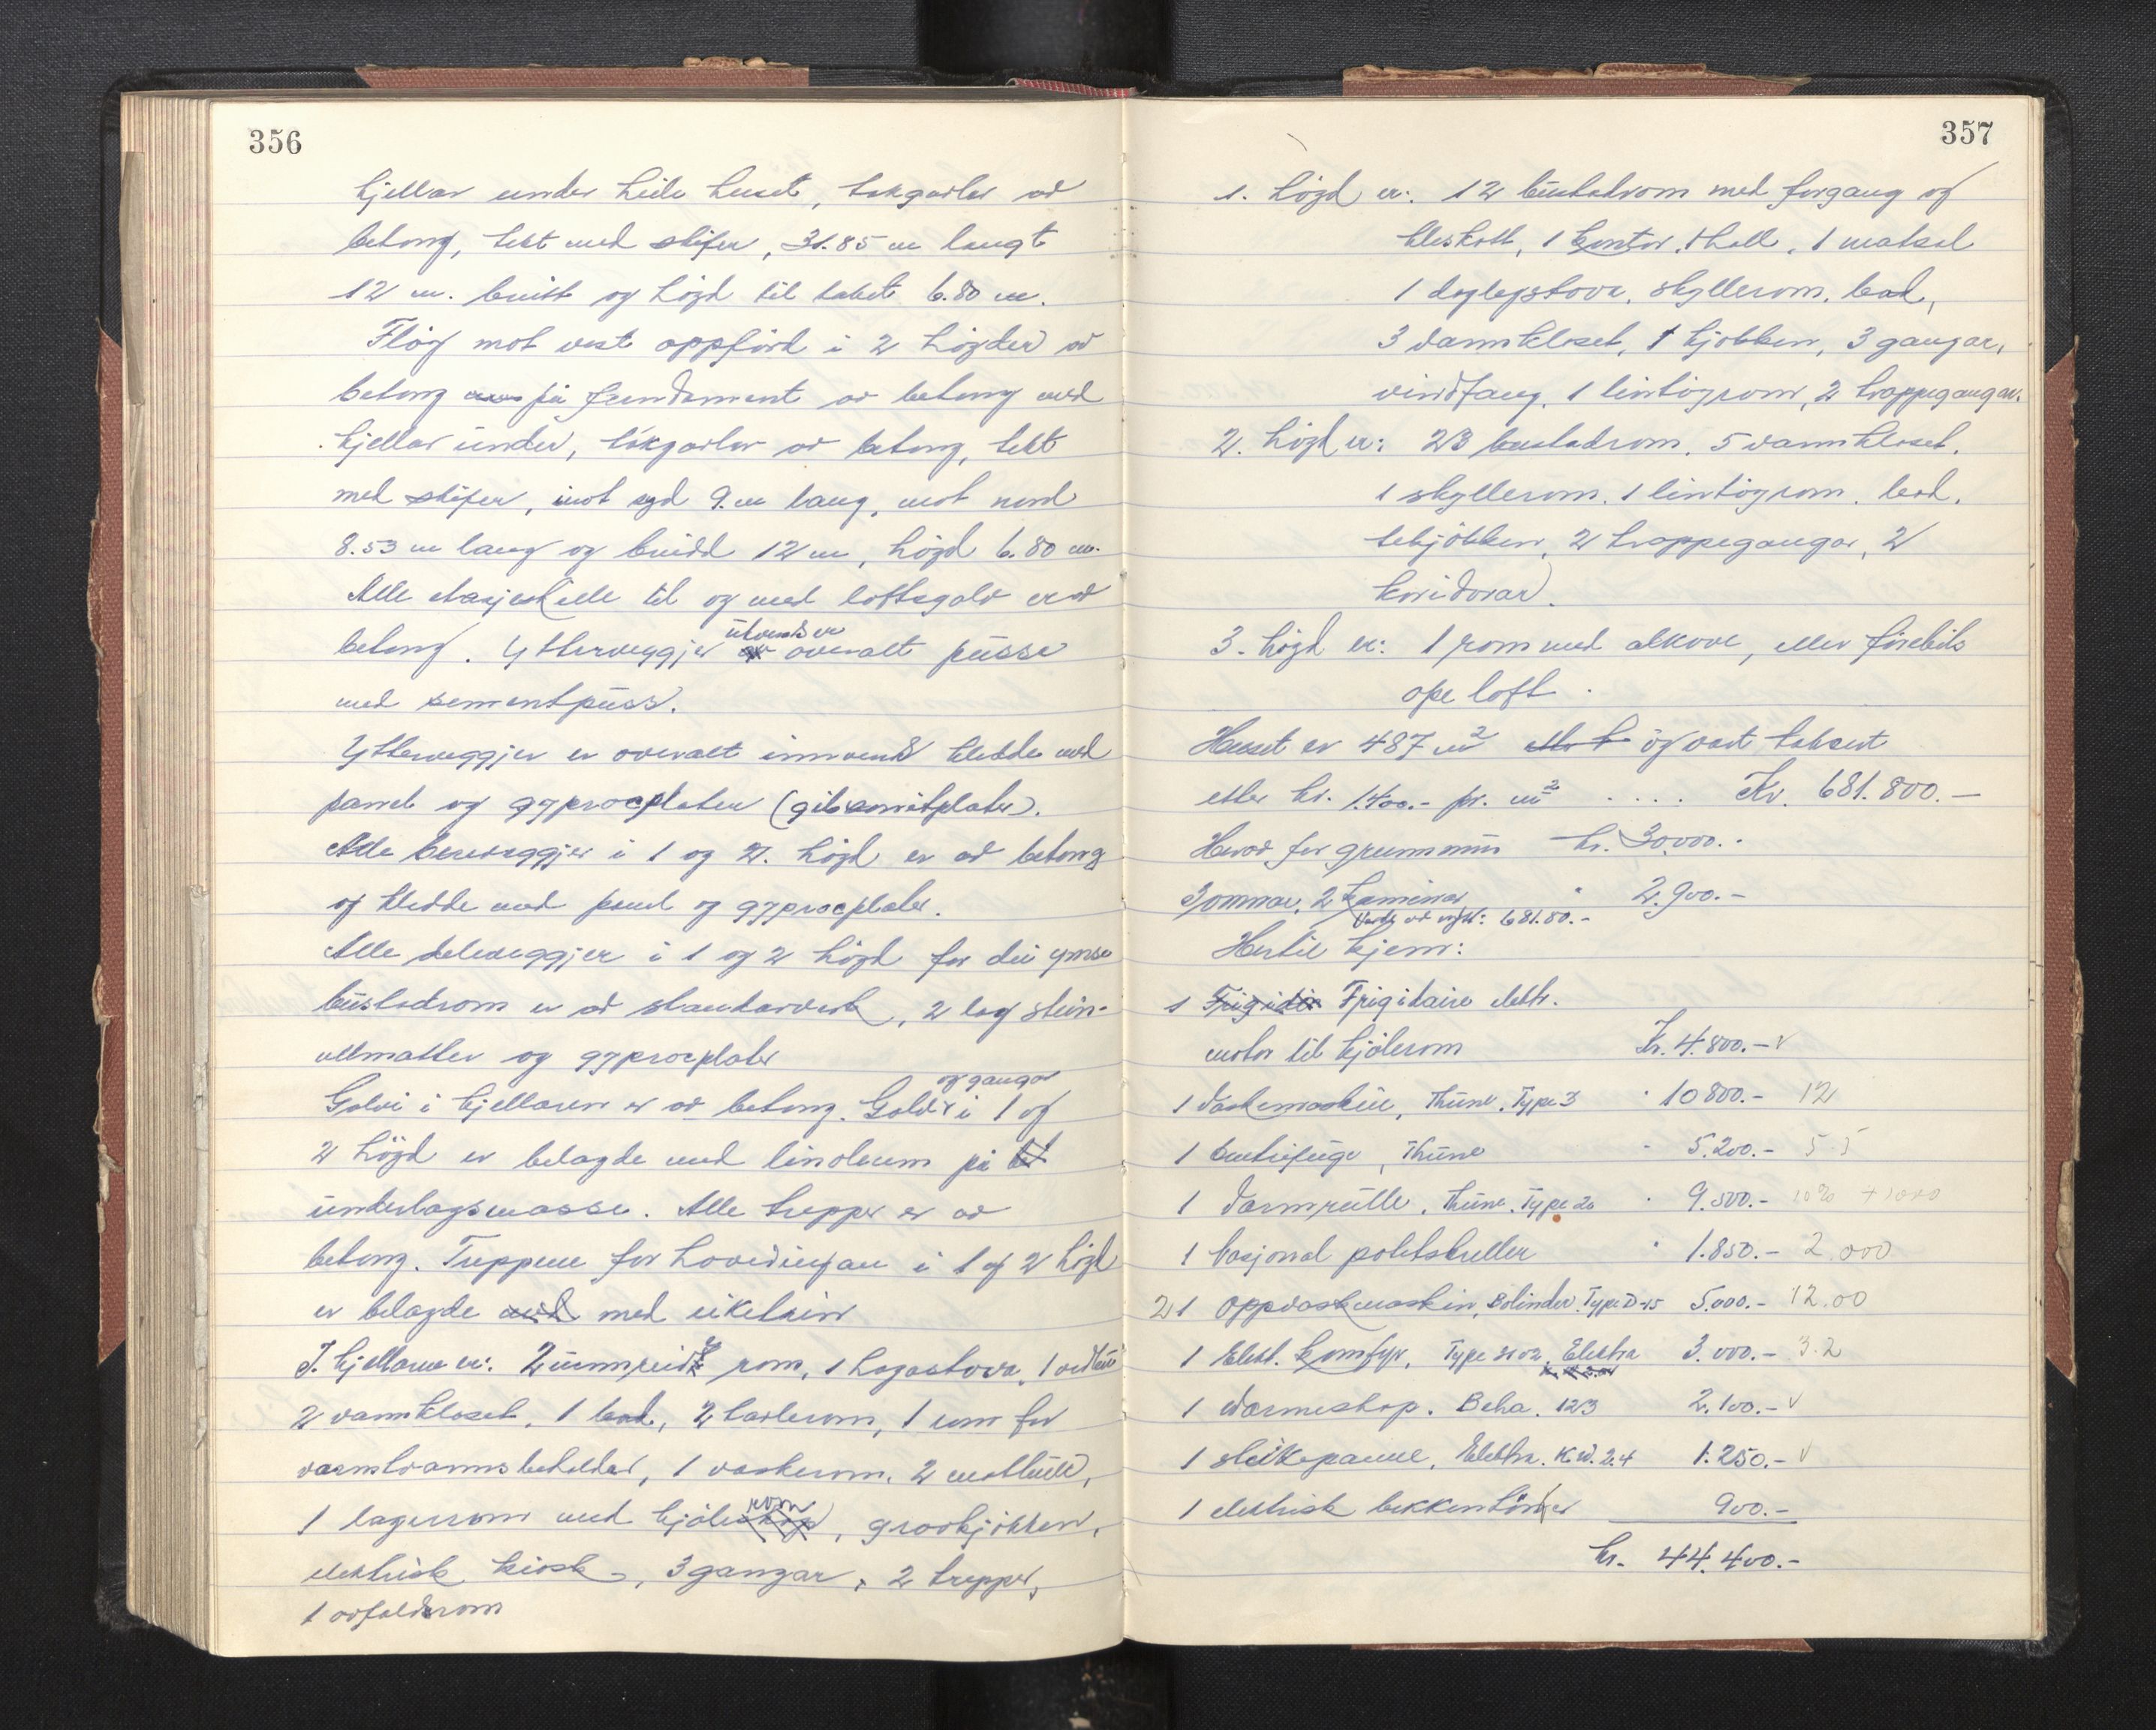 356
kjellar under heile huset, takgarlar av
betong, tekt med skifer, 31.85 m langt
12 m. breitt og högd til taket 6.80 m.
Flöy mot vest oppförd i 2 högder av
betong på fundament av betong med
kjellar under, takgarlar av betong, tekt
med skifer, mot syd 9. m lang, mot nord
8.53 m lang og breidd 12 m, högd 6.80 m.
Alle etasjeskille til og med loftsgolv er av
betong. Ytterveggjer utvendes er overalt pusse
med sementpuss.
Ytterveggjer er overalt innvend kledde med
panel og gyprocplater (gibsonitplater).
Alle bereveggjer i 1 og 2. högd er av betong
og kledde med panel og gyprocplater.
Alle deleveggjer i 1 og 2 högd for dei ymse
bustadrom er av standarverk, 2 lag stein-
ullmatter og gyprocplater
Golvi i kjellaren er av betong. Golvi og gangar i 1 og
2 högd er belagde med linoleum på
underlagsmasse. Alle trapper er av
betong. Trappene for hovedingan i 1 og 2 högd
er belagde med eiketrin
I kjellaren er: 2 innreidde rom, 1 hagastova, 1
2 vannkloset, 1 bad, 2 rom, 1 rom for
varmtvannsbeholdar, 1 vaskerom, 2 matbuer,
1 lagerrom med kjölerom, grovkjökken,
elektrisk kiosk, 3 gangar, 2 trapper,
1 avfaldsrom
357
1. högd er: 12 bustadrom med forgang og
kleskott, 1 kontor, 1 hall, 1 matsal
1 daglegstova, skyllerom, bad,
3 vannkloset, 1 kjökken, 3 gangar,
vindfang, 1 lintöyrom, 2 trappegangar.
2. högd er: 23 bustadrom, 5 vannkloset,
1 skyllerom, 1 lintöyrom, bad,
tekjökken, 2 trappegangar, 2
koridorar.
3. högd er: 1 rom med alkove, eller förebils
ope loft.
Huset er 487 m2 og vart taksert
etter kr. 1.400.- pr. m2 .... Kr. 681.800.-
Herav for grunnmur kr. 30.000.-
Jomnar, 2 kaminar " 2.900.-
681.80.-
Hertil kjem:
1 Frigidaire elektr.
motor til kjölerom Kr. 4.800.- v
1 Vaskemaskin, Thune. Type 3 " 10 800.- 12
1 Centrifuge, Thune " 5.200.- 5 5
1 Varmrulle, Thune. Type 20 " 9.500.- 10% +1000
1 Nasjonal potetskreller " 1.850.- 2.000
2 1 Oppvaskmaskin, Bolinder. Type D-15 5.000.- 12.00
1 Elekt. komfyr, Type 3102, Elektra 3.000.- 3.2
1 Varmeskap. Beha. 123 2.100.- v
1 steikepanne, Elektra. K.W. 2.4 1.250.- v
1 elektrisk bekkentörker 900.-
kr. 44.400.-